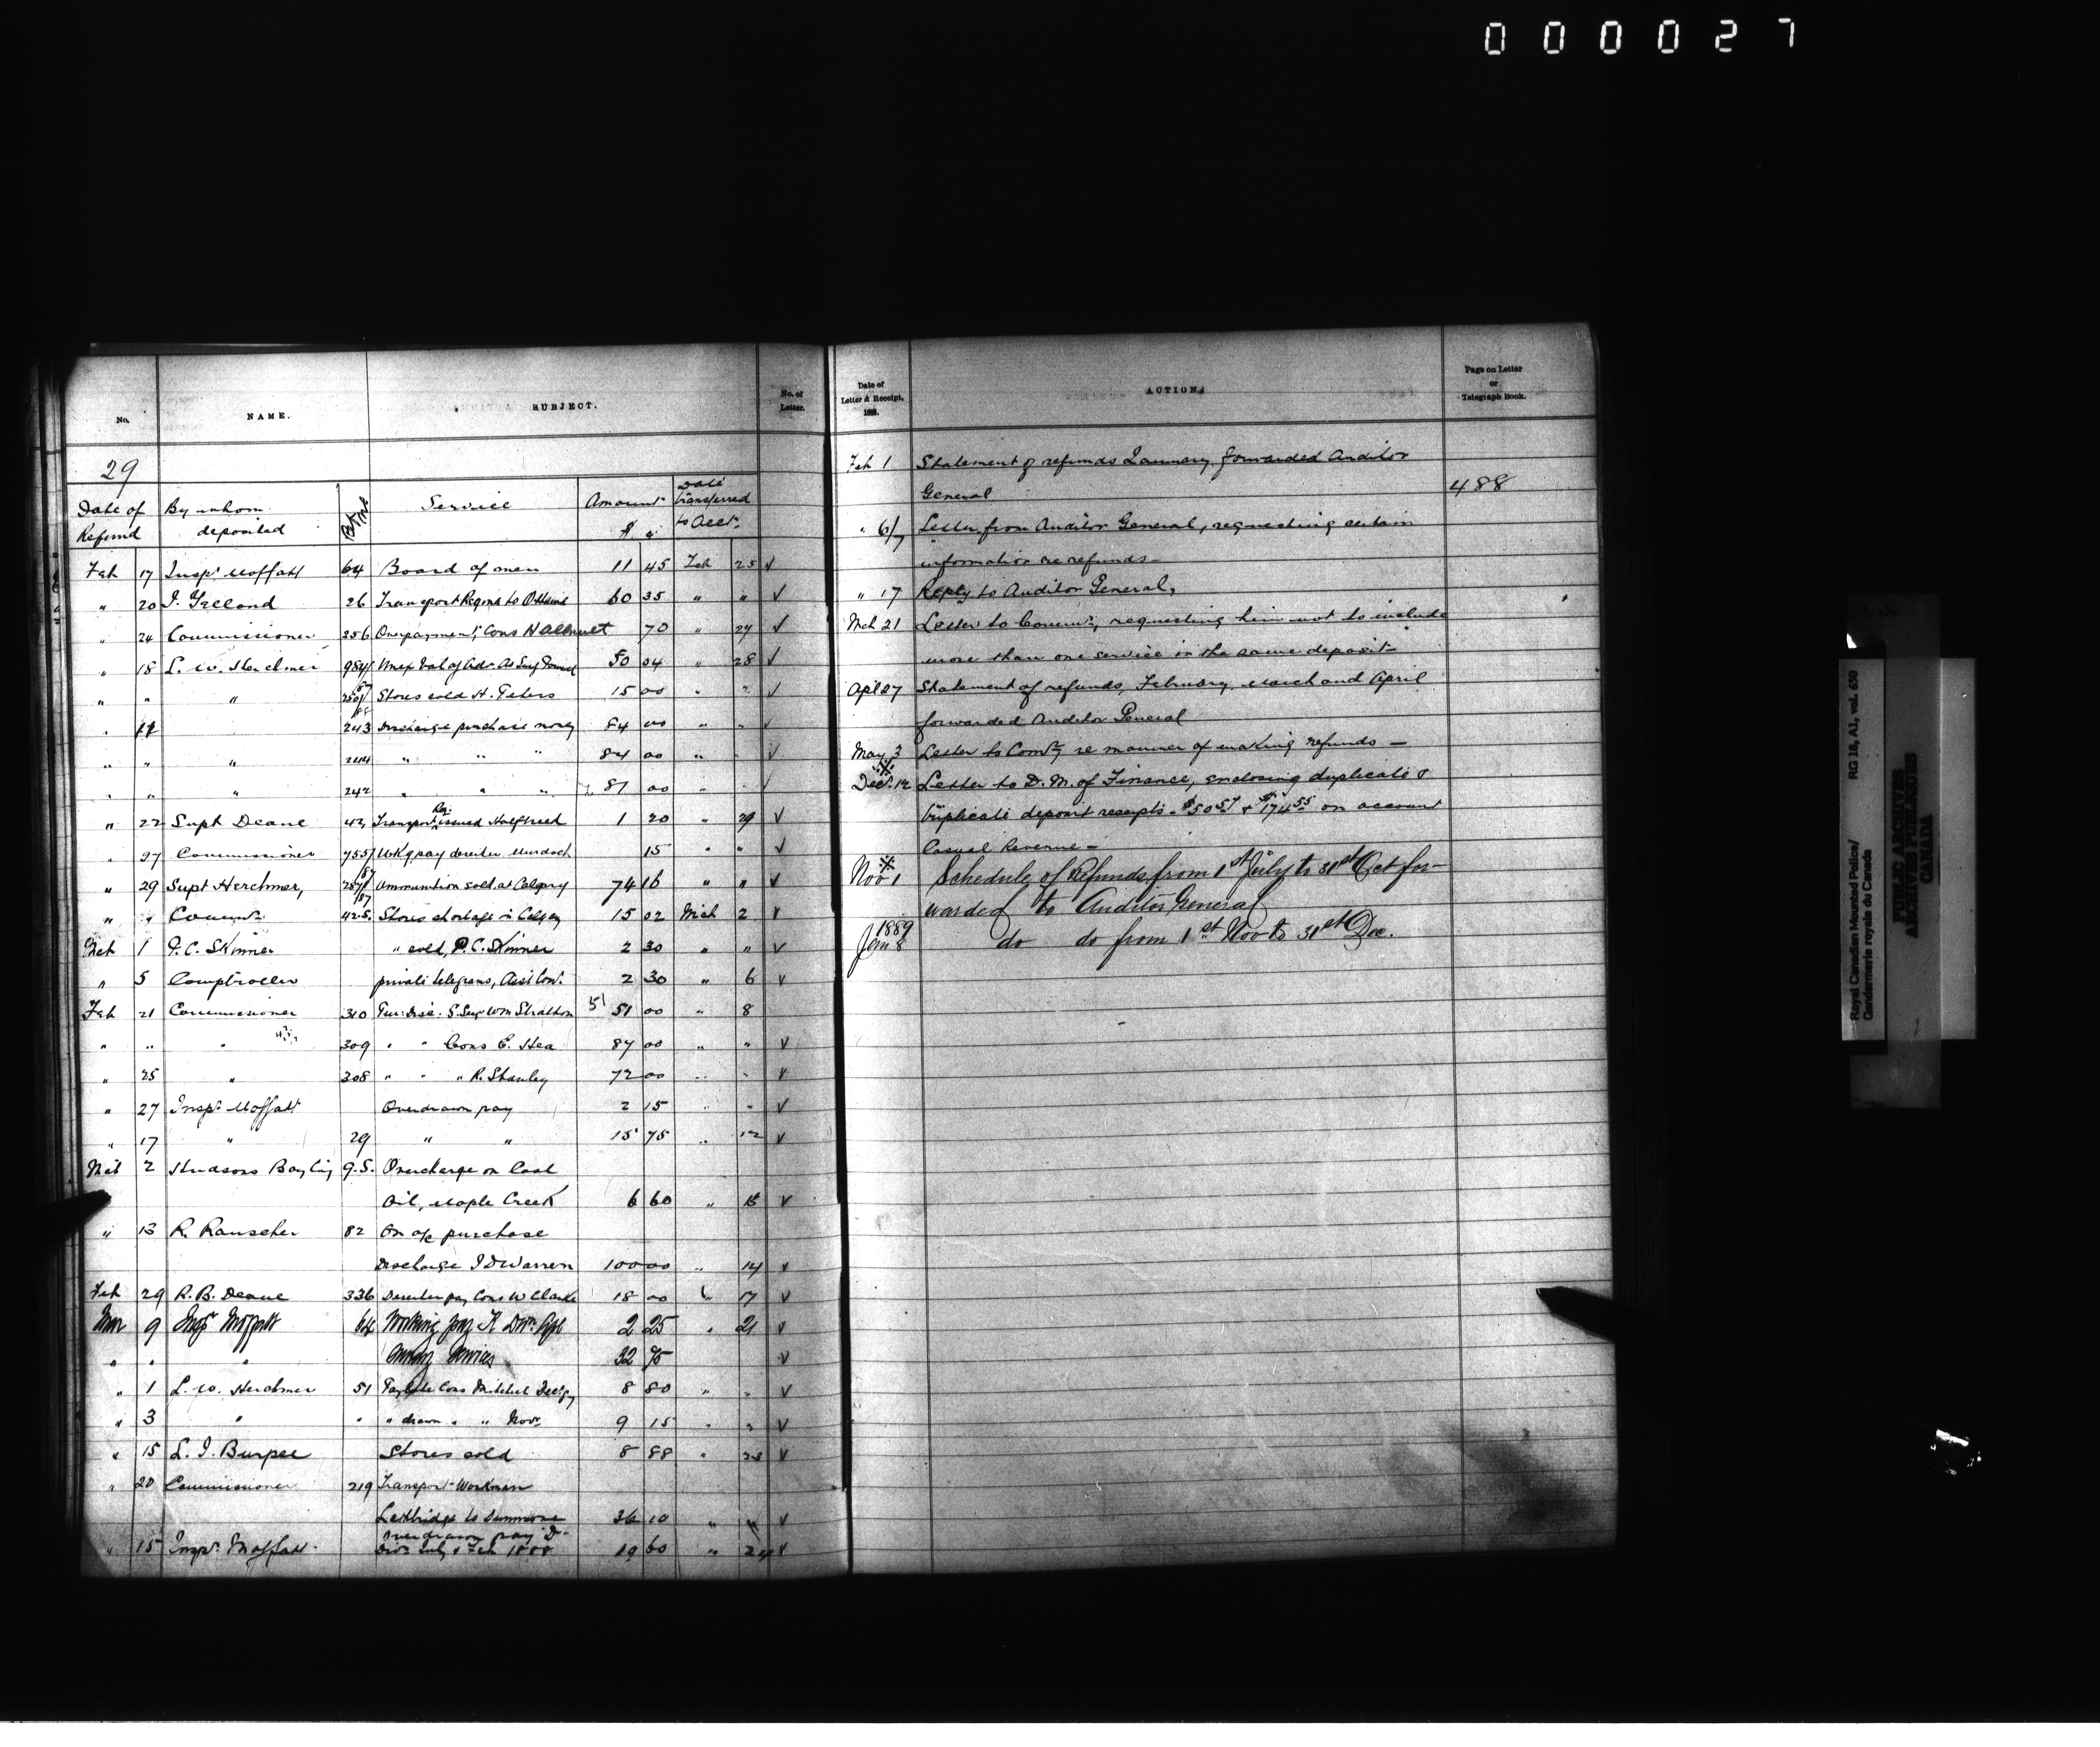 000027
No. NAME. SUBJECT. No. of Letter.
29
Date of Refund By whom deposited Service Amount $ c Date transferred to Acct.
Feb 17 Inspr Moffatt 64 Board of men 11 45 Feb 25 √
" 20 J. Ireland 26 Transport Regina to Ottawa 60 35 " " √
" 24 Commissioner 256 Overpayment, Cons 70 " 27 √
" 18 L. W. Herchmer 50 04 " 28 √
" " " Stores sold H. Peters 15 00 " " √
" 17 243 Discharge purchase money 84 00 " " √
" " " 244 " " " 84 00 " " √
" " " 242 " " " 81 00 " " √
" 22 Supt Deane 42 Transport Reg. issued Halfbreed 1 20 " 29 √
" 27 Commissioner Wkg pay deserter Murdoch 15 " " √
" 29 Supt Herchmer, Ammunition sold at Calgary 74 16 " " √
" " Commr 42.S. Stores shortage in Calgary 15 02 Mch 2 √
Mch 1 P. C. Skinner " sold, P. C. Skinner 2 30 " " √
" 5 Comptroller private telegrams, Asst Com. 2 30 " 6 √
Feb 21 Commissioner 310 Pur: Disc. S. Sergt Wm Stratton 51 51 00 " 8
" " " 309 " " Cons E. Hea 87 00 " " √
" 25 " 308 " " " R. Stanley 72 00 " " √
" 27 Inspr Moffatt Overdrawn pay 2 15 " " √
" 17 " 29 " " 15 75 " 12 √
Mch 2 Hudsons Bay Coy G.S. Overcharge on Coal
Oil, Maple Creek 6 60 " √
" 13 R. Rauscher 82 On a/c purchase
Discharge J D Warren 100 00 " 14 √
Feb 29 R. B. Deane 336 Deserter pay Cons W Clarke 18 00 " 17 √
Mar 9 Inspr Moffatt 64 Working pay K Divn 2 25 " 21 √
" " " 32 75 √
" 1 L. W. Herchmer 51 Cons Mitchell 8 80 " " √
" 3 " " " drawn " " Nov. 9 15 " " √
" 15 L. J. Burpee Stores sold 8 88 " 23 √
" 20 Commissioner 219 Transport Workman
Lethbridge to Dunmore 36 10 " " √
" 15 Inspr Moffatt Overdrawn pay D
Divn July & Feb 1888 19 60 " 24 √
Date of Letter & Receipt, 188 . ACTION. Page on Letter or Telegraph Book.
Feb 1 Statement of refunds January forwarded Auditor
General 488
" 6/7 Letter from Auditor General, requesting certain
information re refunds –
" 17 Reply to Auditor General,
Mch 21 Letter to Commr, requesting him not to include
more than one service in the same deposit –
Apl 27 Statement of refunds, February, March and April
forwarded Auditor General
May 3 Letter to Comr, re manner of making refunds –
Decr. 12 Letter to D. M. of Finance, enclosing duplicate &
triplicate deposit receipts – $50 57 & $174 55 on account
Casual Revenue –
Nov 1 Schedule of Refunds from 1st July to 31st Oct for-
warded to Auditor General
1889
Jan 8 do do from 1st Nov to 31st Dec.
Royal Canadian Mounted Police/
Gendarmerie royale du Canada
RG 18, A1, vol. 630
PUBLIC ARCHIVES
ARCHIVES PUBLIQUES
CANADA